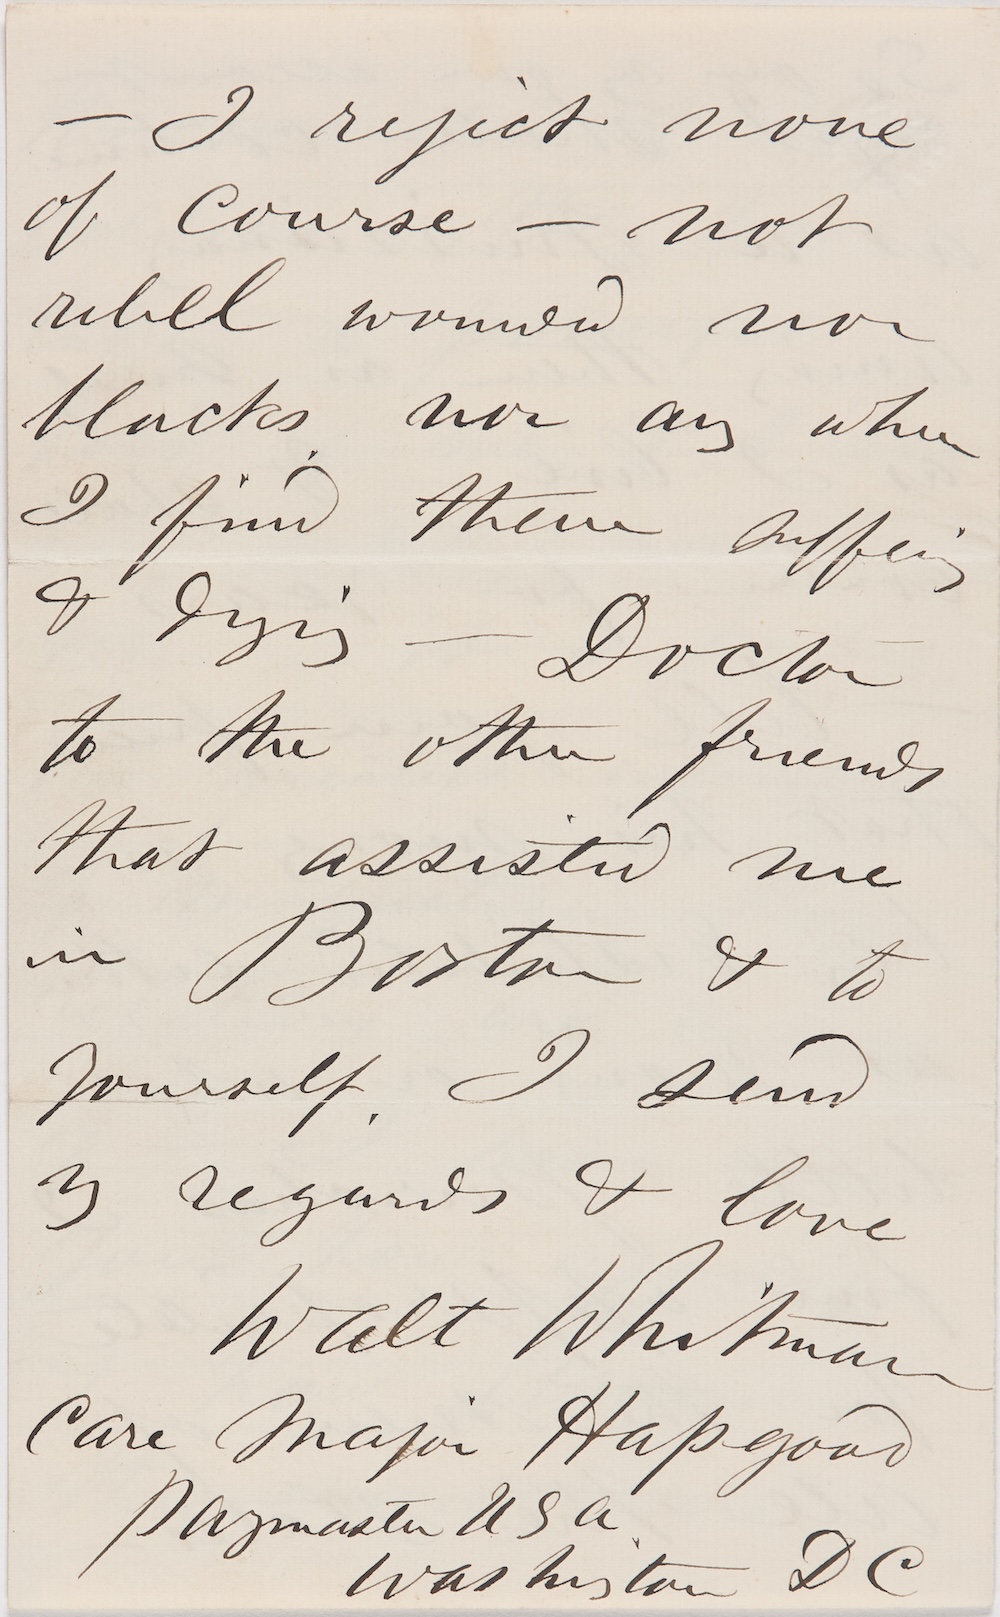 — I reject none
of course — not
rebel wounded nor
blacks, nor any when
I find them suffering
& dying — Doctor
to the other friends
that assisted me
in Boston & to
yourself, I send
my regards & love
Walt Whitman
Care Major Hapgood
Paymaster U S A
Washington D C